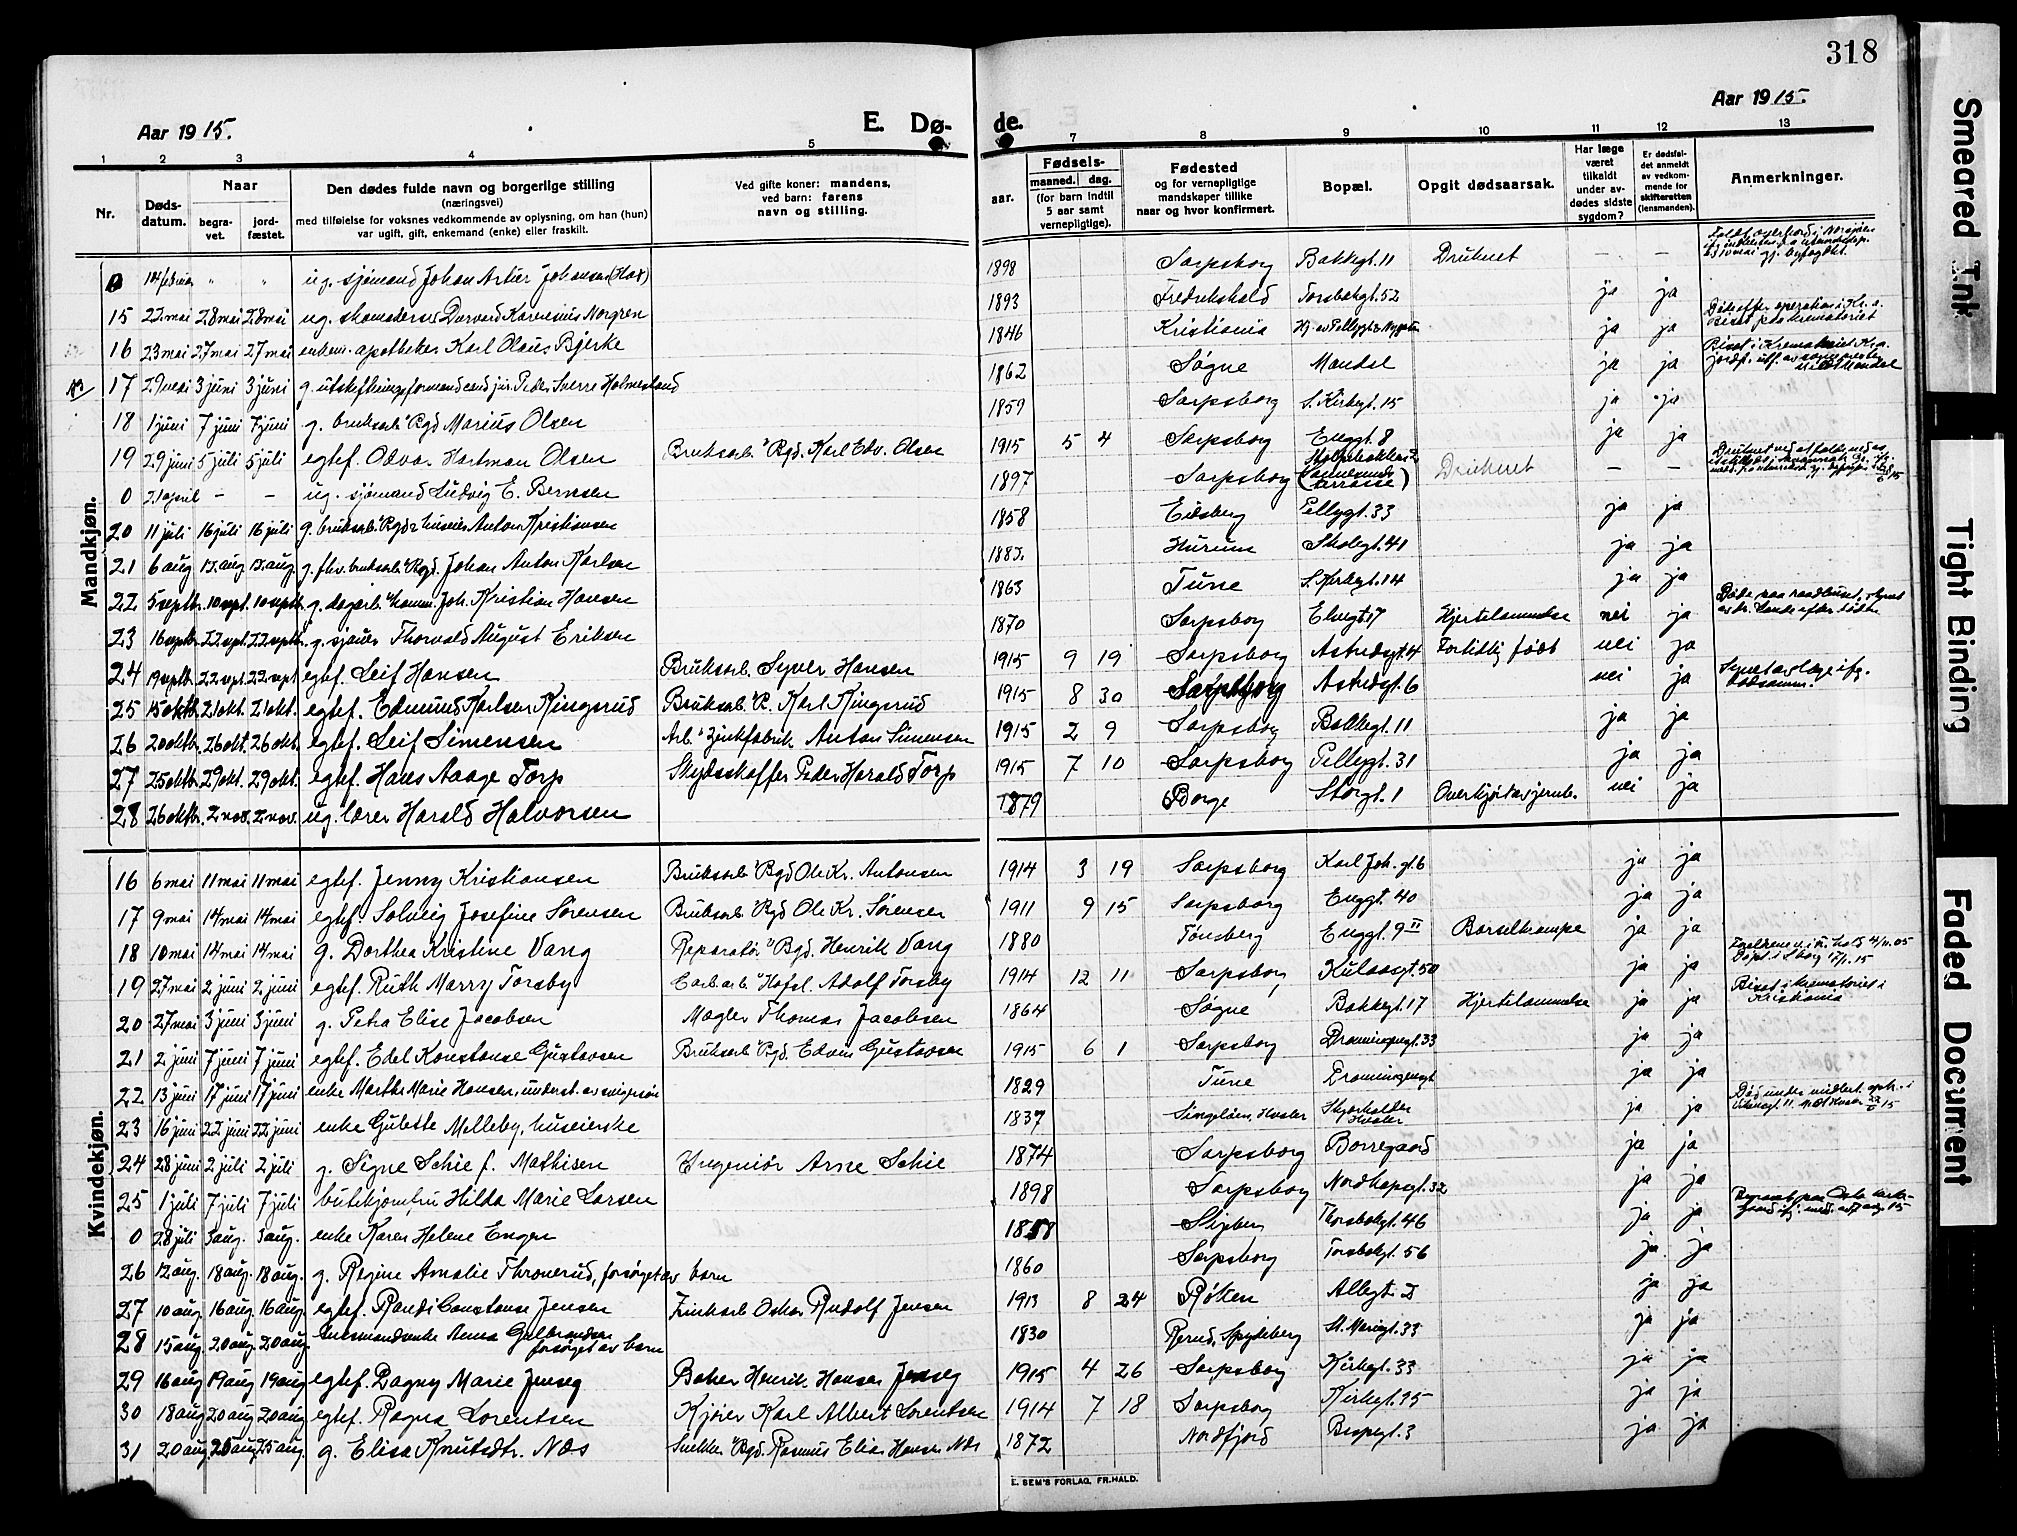 318
Aar 1915.
E. Dø-
de.
Aar 1915.
1 2 3 4 5 7 8 9 10 11 12 13
Nr.
Døds-
datum.
Naar
begra-
vet.
jord-
fæstet.
Den dødes fulde navn og borgerlige stilling
(næringsvei)
med tilføielse for voksnes vedkommende av oplysning, om han (hun)
var ugift, gift, enkemand (enke) eller fraskilt.
Ved gifte koner: mandens,
ved barn: farens
navn og stilling.
aar.
Fødsels-
maaned. dag.
(for barn indtil
5 aar samt
vernepligtige).
Fødested
og for vernepligtige
mandskaper tillike
naar og hvor konfirmert.
Bopæl.
Opgit dødsaarsak.
Har læge
været
tilkaldt
under av-
dødes sidste
sygdom?
Er dødsfal-
det anmeldt
av vedkom-
mende for
skifteretten
(lensmanden).
Anmerkninger.
Mandkjøn.
0 14 februar " " ug. sjømand Johan Artur Johansen (Hox) 1898 Sarpsborg Bakkegt. 11 Druknet — —
15 22 mai 28 mai 28 mai ug. skomakersv. Norgren 1893 Fredrikshald Torsbekgt. 52 ja ja
16 23 mai 27 mai 27 mai enkem. apotheker Karl Olaus Bjerke 1846 Kristiania ja ja
17 29 mai 3 juni 3 juni g. utskiftningsformand cand jur. Peder Sverre Holmesland 1862 Søgne Mandal ja ja
18 1 juni 7 juni 7 juni g. bruksarb. v/Bgd Marius Olsen 1859 Sarpsborg S. Kirkegt. 15 ja ja
19 29 juni 5 juli 5 juli egtef. Odvar Hartman Olsen Bruksarb. v/Bgd. Karl Edv. Olsen 1915 5 4 Sarpsborg Enggt. 8 ja ja
0 21 april — — ug. sjømand Ludvig E. Berntsen 1897 Sarpsborg Druknet — —
20 11 juli 16 juli 16 juli g. bruksarb. v/Bgd & huseier Anton Kristiansen 1858 Eidsberg Pellygt. 33 ja ja
21 6 aug 12. aug 12. aug. g. fhv. bruksarb. v/Bgd. Johan Anton Karlsen 1885. Hurum Skolegt. 41 ja ja
22 5 septbr. 10 sept. 10 septb. g. dagarb. v/komm. Joh. Kristian Hansen 1863 Tune S. Kirkegt. 14 ja ja
23 16 septbr. 22 sept. 22 septb. g. sjauer Thorvald August Eriksen 1870 Sarpsborg Elvegt. 7 Hjertelammelse nei ja
24 19 septb. 22 sept. 22 sept egtef. Leif Hansen Bruksarb. Syver Hansen 1915 9 19 Sarpsborg Astridsgt. 4 Fortidlig født nei ja
25 15 oktbr. 21 okt. 21 okt. egtef. Edmund Karlsen Kingsrud Bruksarb. v/B. Karl Kingsrud 1915 8 30 Sarpsborg Astridsgt. 6 nei ja
26 20 oktb. 26 okt. 26 okt. egtef. Leif Simensen Arb. v/Zinkfabrik Anton Simensen 1915 2 9 Sarpsborg Bakkegt. 11 ja ja
27 25 oktb. 29 okt. 29 okt. egtef. Hans Aage Torp Skydsskaffer Peder Harald Torp 1915 7 10 Sarpsborg Pellygt. 31 ja ja
28 26 oktbr. 2 nov. 2 nov. ug. lærer Harald Halvorsen 1879 Borge Storgt. 1 Overkjørt av jernb. nei ja
Kvindekjøn.
16 6 mai 11 mai 11 mai egtef. Jenny Kristiansen Bruksarb. v/Bgd Ole Kr. Antonsen 1914 3 19 Sarpsborg Karl Joh. gt. 6 ja ja
17 9 mai 14 mai 14 mai egtef. Solveig Josefine Sørensen Bruksarb. v/Bgd Ole Kr. Sørensen 1911 9 15 Sarpsborg Enggt. 40 ja ja
18 10 mai 14 mai 14 mai g. Dorthea Kristine Vang Reparatør v/Bgd. Henrik Vang 1880 Tønsberg Enggt. 9 II Barselkrampe ja ja
19 27 mai 2 juni 2 juni egtef. Ruth Marry Torsby Adolf Torsby 1914 12 11 Sarpsborg Kulaasgt. 50 ja ja
20 27 mai 3 juni 3 juni g. Petra Elise Jacobsen Mægler Thomas Jacobsen 1864 Søgne Bakkegt. 17 Hjertelammelse ja ja Bisat i krematoriet i Kristiania
21 2 juni 7 juni 7 juni egtef. Edel Konstanse Gustavsen Bruksarb. v/Bgd. Edvin Gustavsen 1915 6 1 Sarpsborg Dronningensgt. 33 ja ja
22 13 juni 17 juni 17 juni enke Marthe Marie Hansen, underst. av svigersøn 1829 Tune Dronningensgt ja ja
23 16 juni 22 juni 22 juni enke Gulette Melleby, huseierske 1837 Singeløen, Hvaler Skjærhalden Hvaler ja ja
24 28 juni 2 juli 2 juli g. Signe Schie f. Mathisen Ingeniør Arne Schie 1874 Sarpsborg Borregaard ja ja
25 1 juli 7 juli 7 juli butikjomfru Hilda Marie Larsen 1898 Sarpsborg Nordkapsgt. 32 ja ja
0 28 juli 3 aug. 3 aug. enke Karen Helene Engen 1858 Torsbekgt. 46 ja ja
26 12 aug. 18 aug. 18 aug. g. Regine Amalie Thronerud, forsørget av barn 1860 Sarpsborg Torsbekgt. 56 ja ja
27 10 aug. 16 aug. 16 aug. egtef. Randi Constanse Jensen Zinkarb. Oskar Rudolf Jensen 1913 8 24 Røken Allegt. 2 ja ja
28 15 aug. 20 aug. 20 aug. Anna Gulbrandsen forsørget av barn 1830 Spydeberg St. Mariegt. 33 ja ja
29 16 aug 19 aug 19 aug egtef. Dagny Marie Jenseg Baker Henrik Hansen Jenseg 1915 4 26 Sarpsborg Kirkegt. 33 ja ja
30 18 aug 20 aug 20 aug egtef. Ragna Lorentsen Kjører Karl Albert Lorentsen 1914 7 18 Sarpsborg Kirkegt. 35 ja ja
31 20 aug. 25 aug. 25 aug. g. Elisa Knutsdtr. Næs Snekker v/Bgd. Rasmus Elias Hansen Næs 1872 Nordfjord Bispegt. 3 ja ja
E. SEM'S FORLAG, FR.HALD.
Smeared Ink
Tight Binding
Faded Document